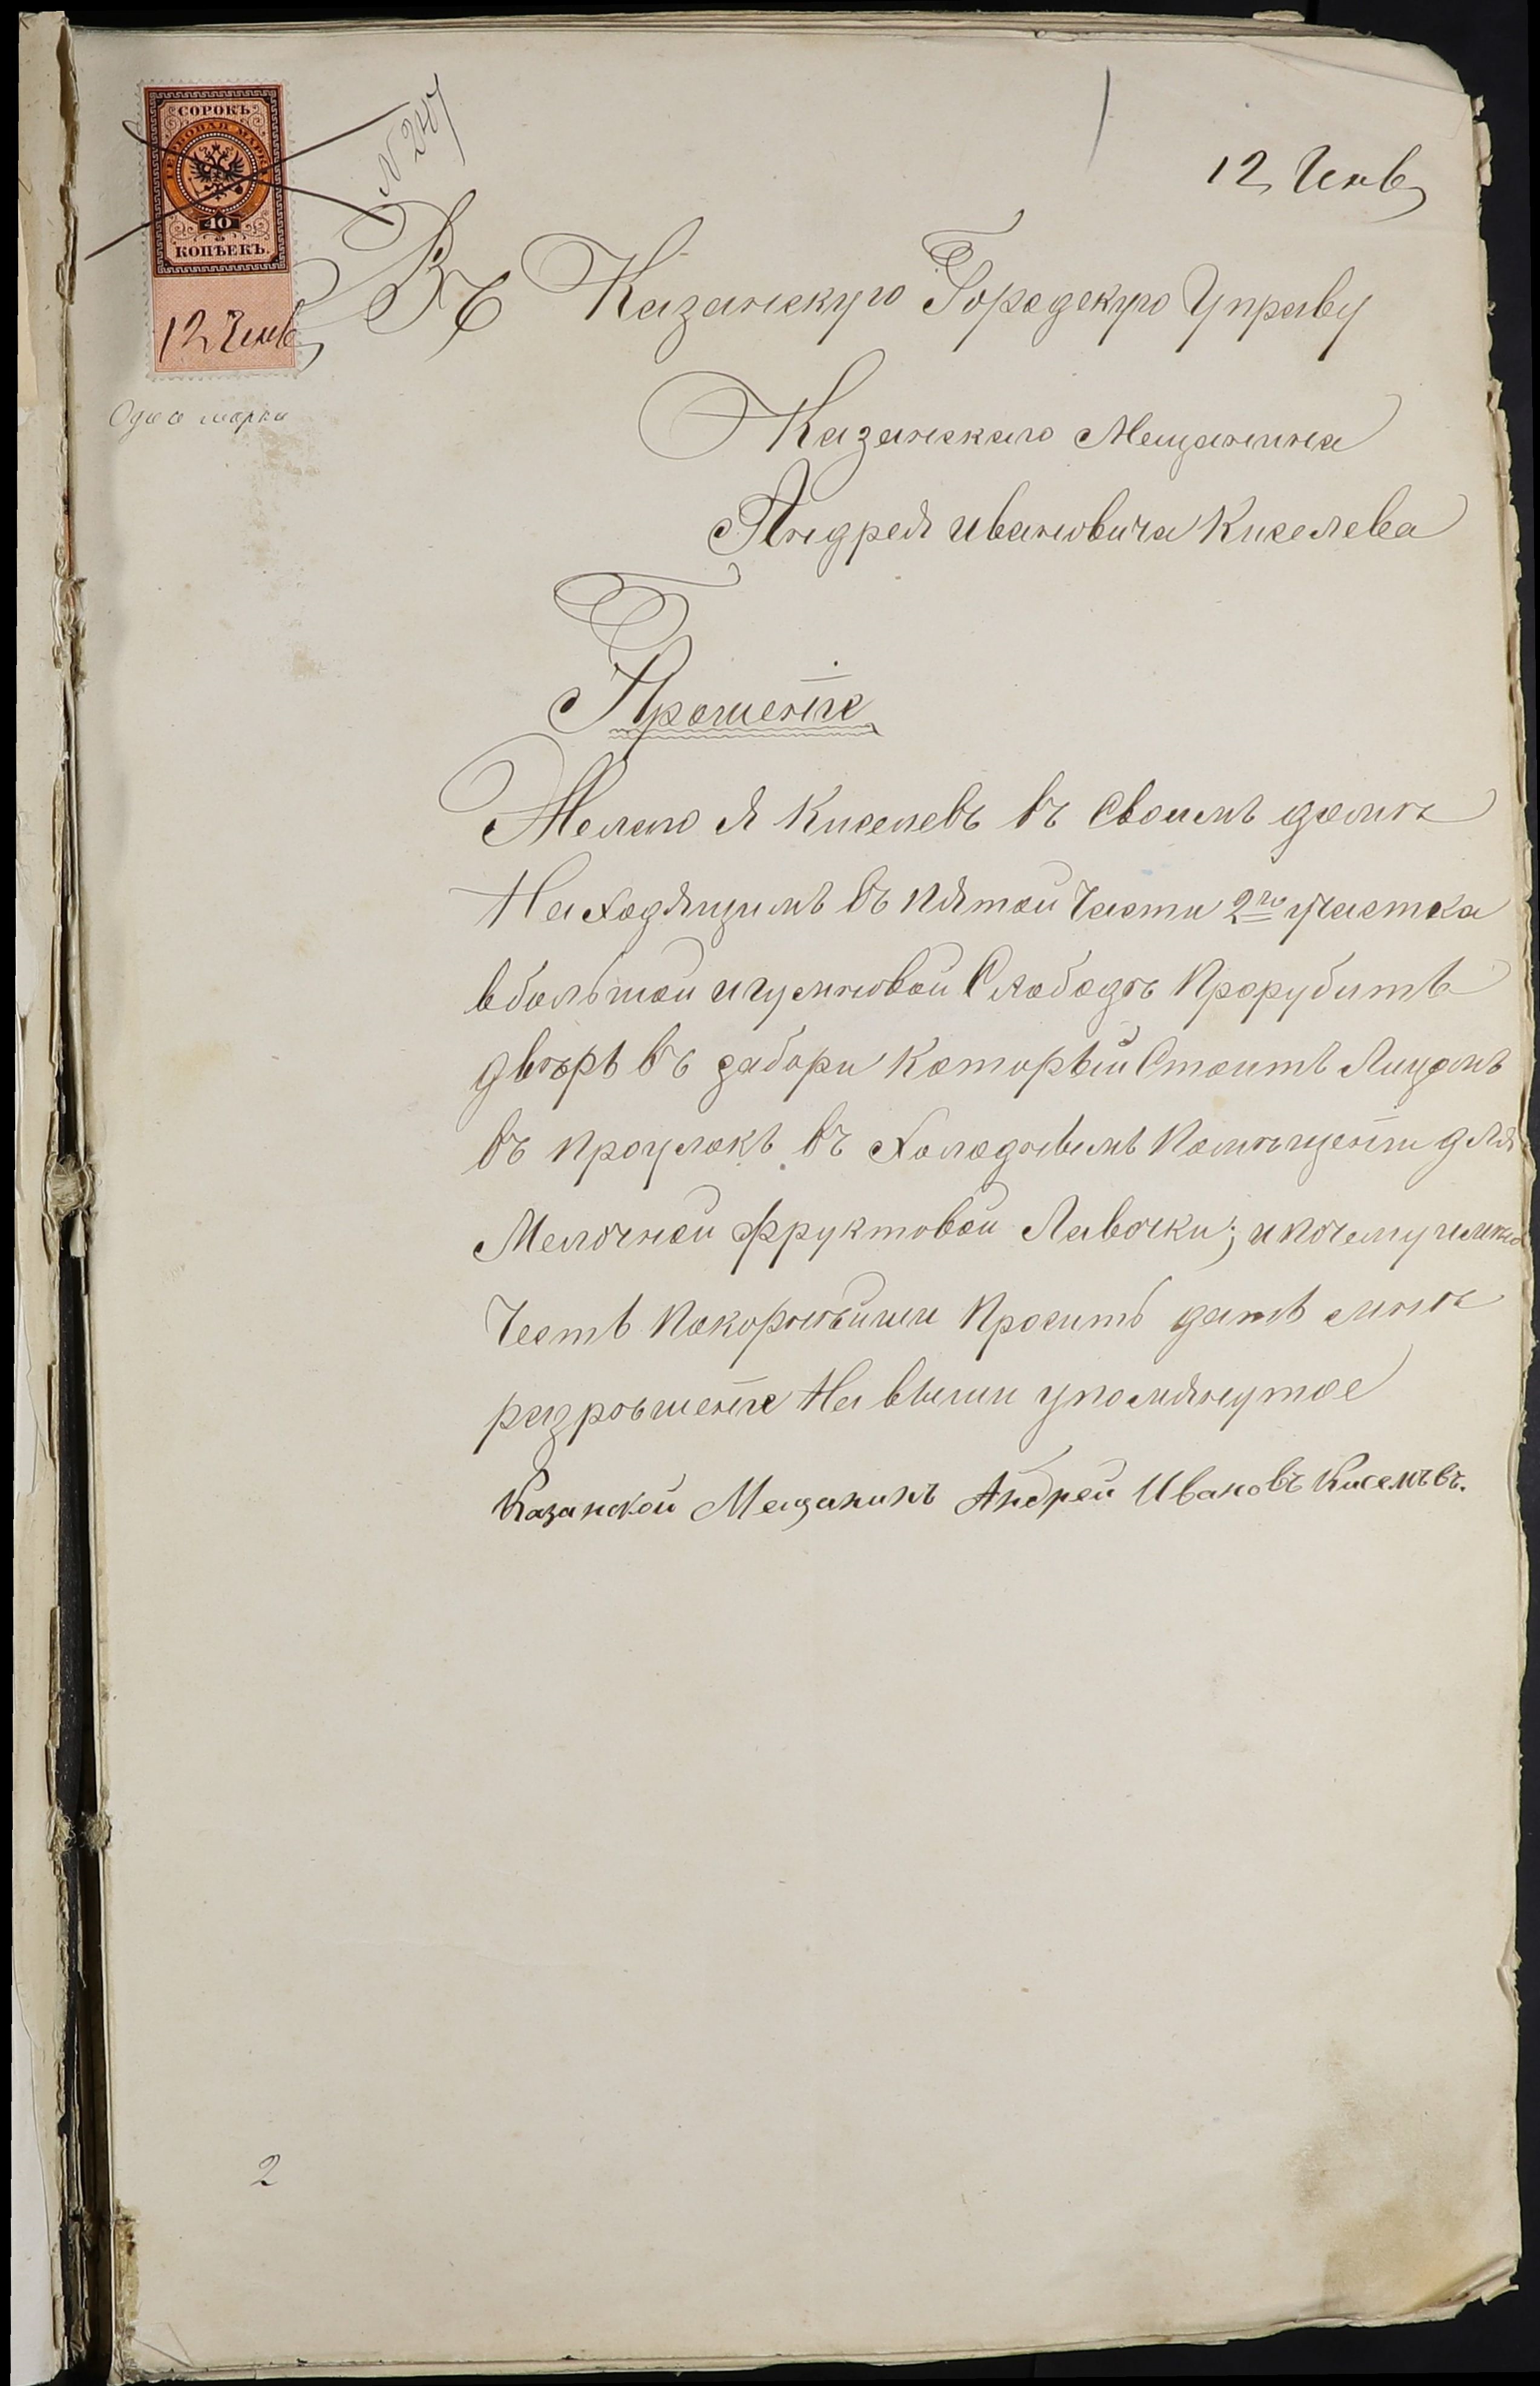 СОРОКЪ
ГЕРБОВАЯ МАРКА
40
КОПѢЕКЪ.
12 Генв
Одна марка
12 Генв
Въ Казанскую Городскую Управу
Казанскаго Мещанина
Андрея ивановича Киселева
Прошеніе
Желаю я Киселевъ въ своимъ домѣ
Находящимъ въ пятой Части 2го участка
вбольшой игумновой Слободѣ Прорубить
двѣрь въ забори который Стоитъ Лицомъ
въ проулокъ въ Холоднымъ Помѣщеніи для
Мелочной фруктовой Лавочки; и почему имею
Честь Покорнѣйши Просить дать мнѣ
разрѣшеніе На выши упомянутое
Казанской Мещанинъ Андрей Ивановъ Киселѣвъ.
2